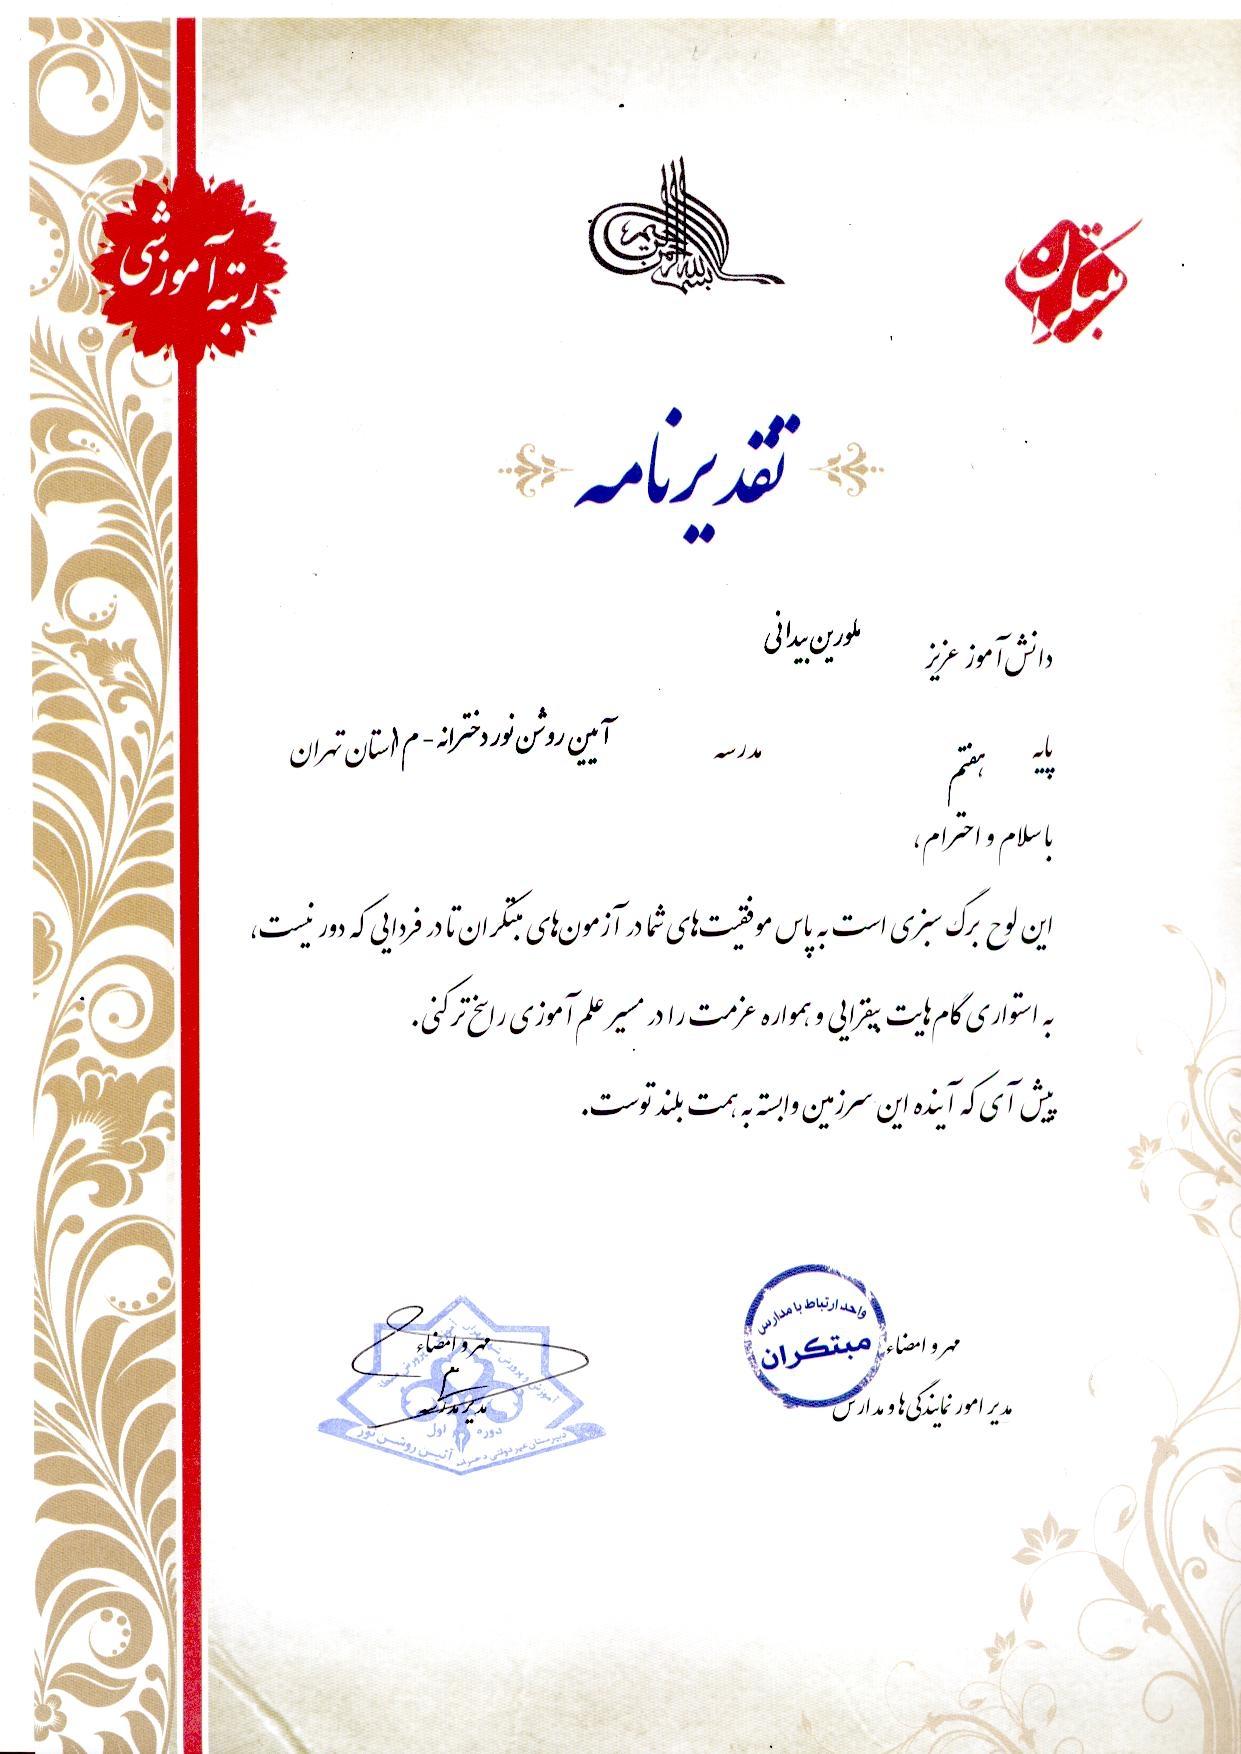 بسم الله الرحمن الرحیم
مبتکران
رتبه آموزشی
تقدیرنامه
دانش آموز عزیز ملورین بیدانی
پایه هفتم مدرسه آیین روشن نور دخترانه - م ۱ استان تهران
با سلام و احترام،
این لوح برگ سبزی است به پاس موفقیت‌های شما در آزمون‌های مبتکران تا در فردایی که دور نیست،
به استواری گام‌هایت بیفزایی و همواره عزمت را در مسیر علم آموزی راسخ تر کنی.
پیش آی که آینده این سرزمین وابسته به همت بلند توست.
مهر و امضاء
مدیر امور نمایندگی‌ها و مدارس
واحد ارتباط با مدارس
مبتکران
مهر و امضاء
مدیر مدرسه
دوره اول
دبیرستان غیر دولتی دخترانه آئین روشن نور